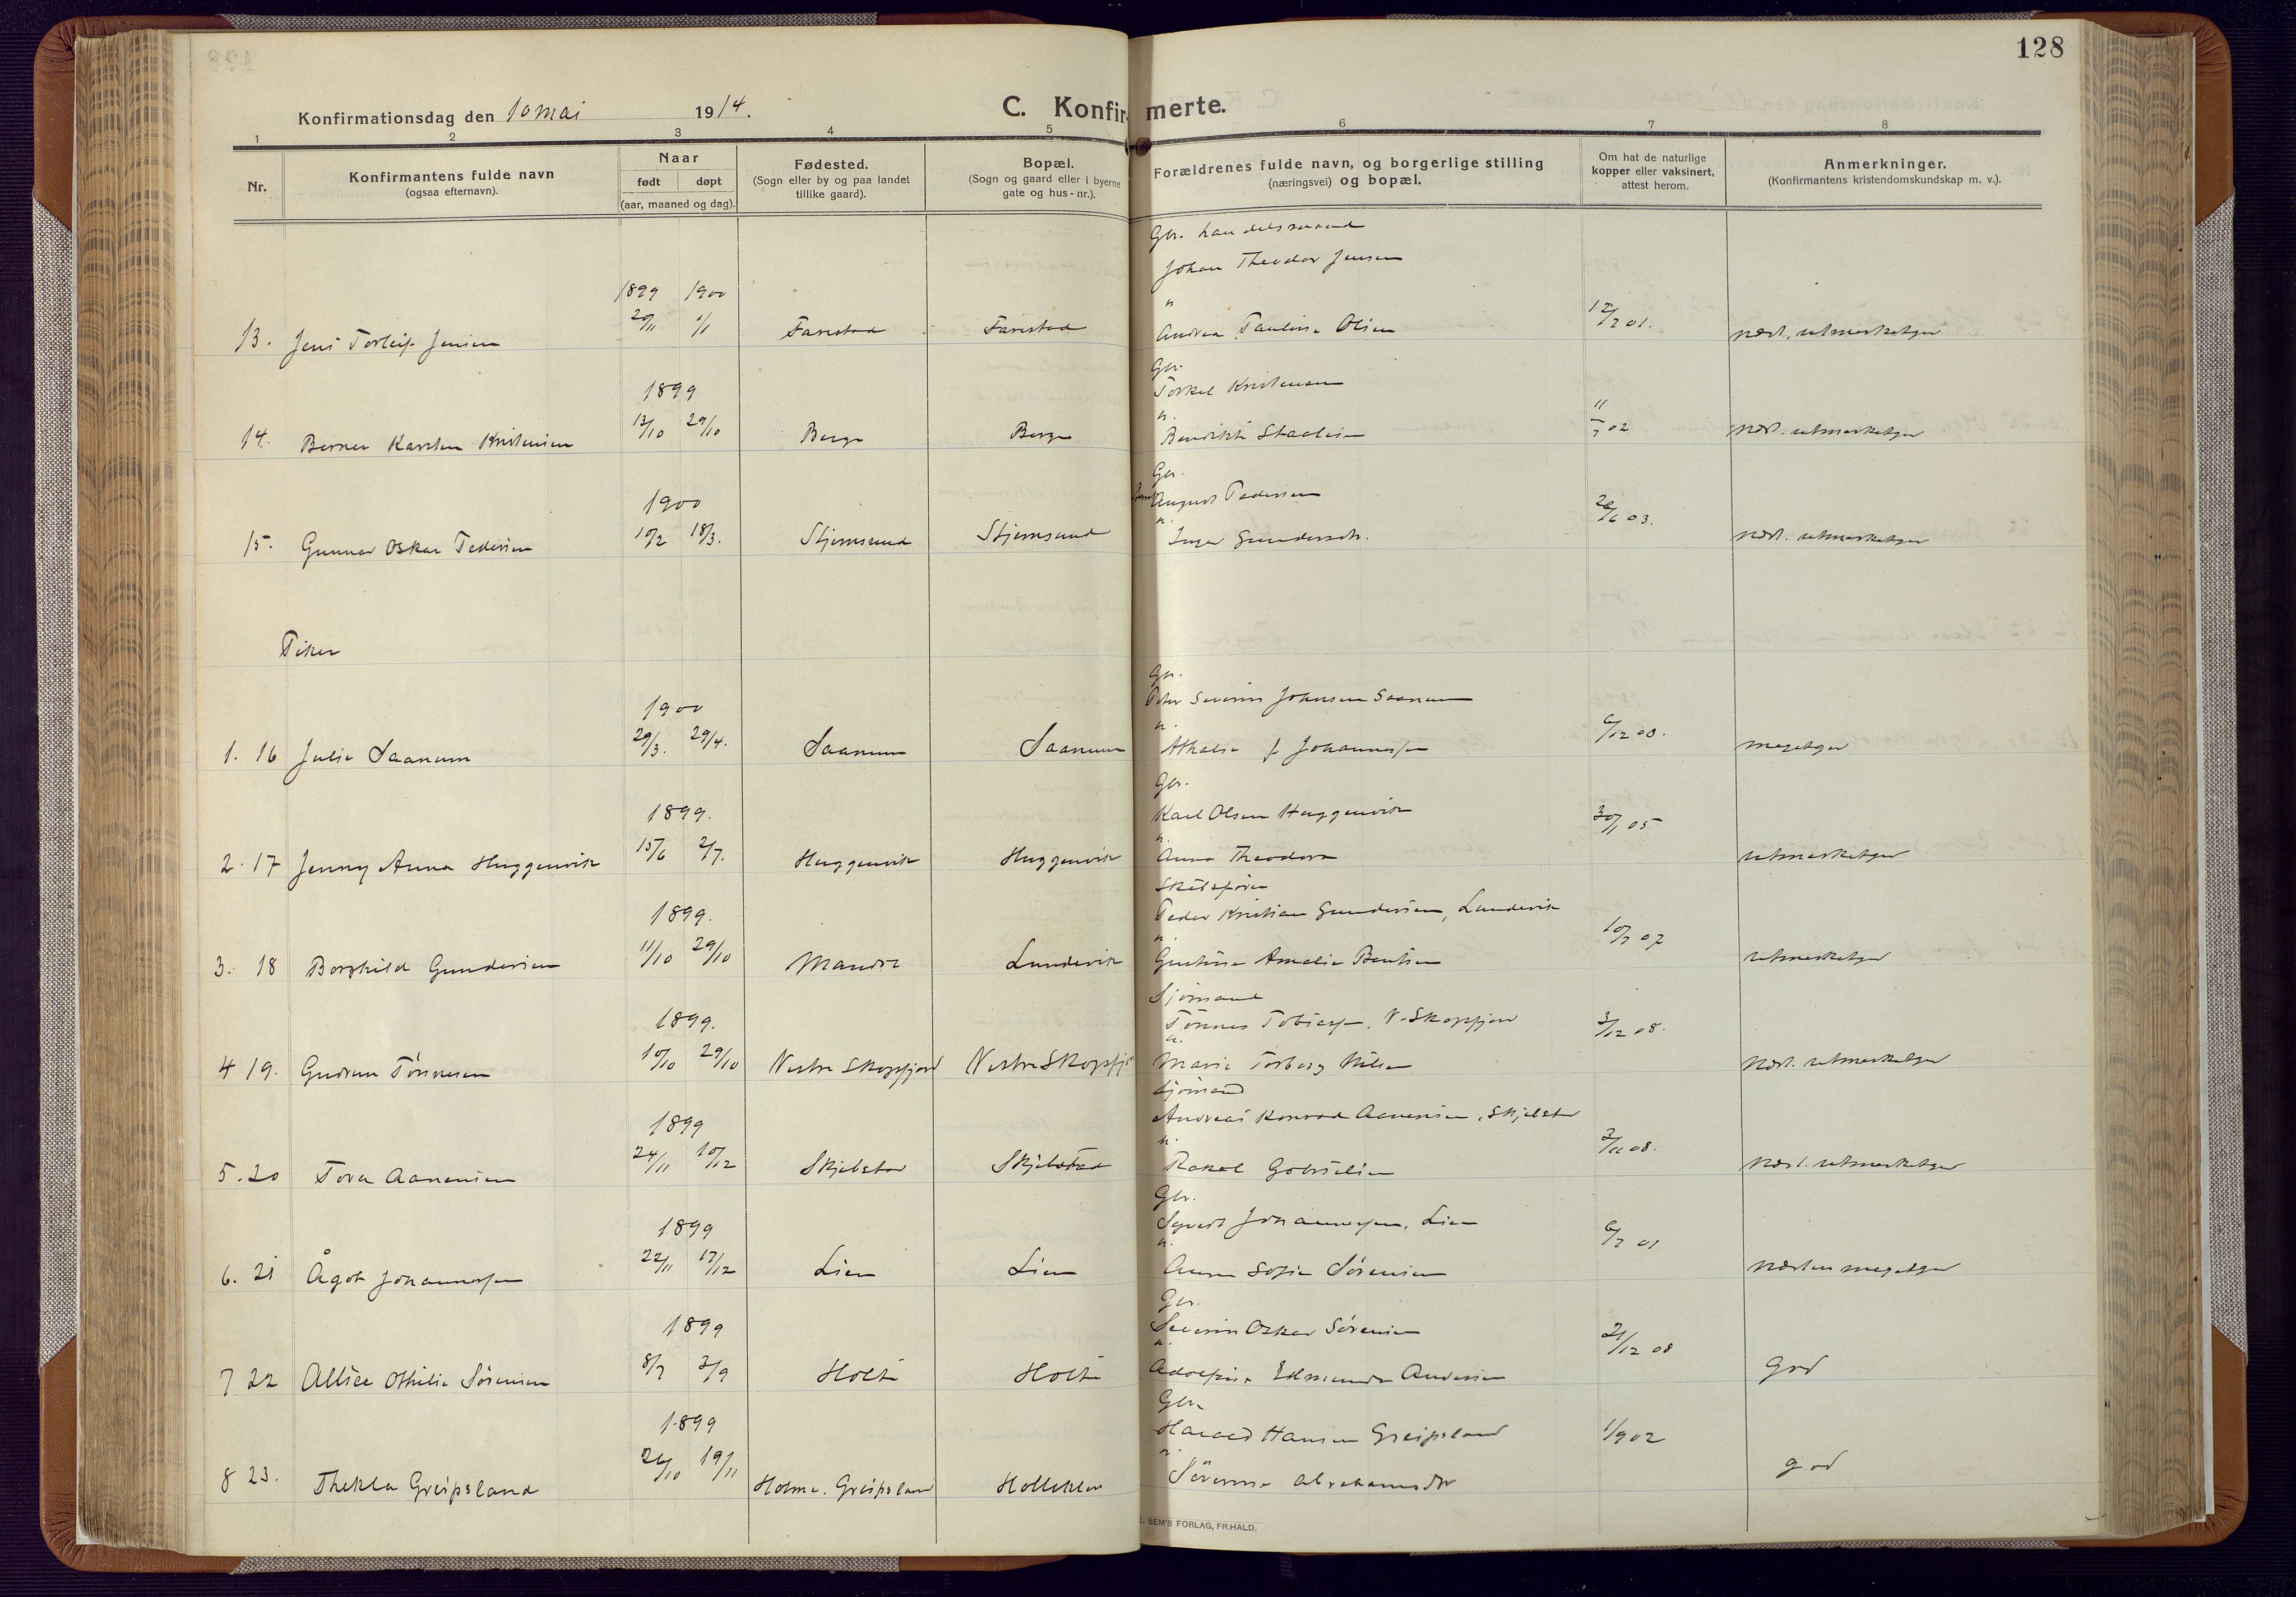 128
Konfirmationsdag den 10 mai 1914.
C. Konfirmerte.
1 2 3 4 5 6 7 8
Nr.
Konfirmantens fulde navn
(ogsaa efternavn).
Naar
født døpt
(aar, maaned og dag).
Fødested.
(Sogn eller by og paa landet
tillike gaard).
Bopæl.
(Sogn og gaard eller i byerne
gate og hus-nr.).
Forældrenes fulde navn, og borgerlige stilling
(næringsvei) og bopæl.
Om hat de naturlige
kopper eller vaksinert,
attest herom.
Anmerkninger.
(Konfirmantens kristendomskundskap m. v.).
Gbr. handelsmand
Johan Theodor Jensen
1899 1900
o
13. Jens Torleif Jensen 20/11 1/1 Farestad Farestad Andrea Pauline Olsen 12/2 01. næst. utmerketgod
Gbr.
Torkel Kristensen
1899
o.
14. Berner Karsten Kristensen 13/10 29/10 Berge Berge Bendikte Staalesen 11/7 02 næst. utmerketgod
Gbr.
August Pedersen
1900
o.
15. Gunnar Oskar Pedersen 10/2 18/3. Stjernsund Stjernsund Inger Gundersdtr. 26/6 03. næst. utmerketgod
Piker
Gbr.
Peter Severin Johnsen Saanum
1900
o.
1. 16 Julie Saanum 29/3. 29/4. Saanum Saanum Athalie f Johannessen 6/12 00. megetgod
Gbr.
Karl Olsen Huggenvik
1899.
o.
2. 17 Jenny Anna Huggenvik 15/6 2/7. Huggenvik Huggenvik Anna Theodora 30/1 05 utmerketgod
Skibsfører
Peder Kristian Gundersen, Lundevik
1899.
o.
3. 18 Borghild Gundersen 11/10 29/10 Mandal Lundevik Gustava Amalie Bentsen 10/7 07 utmerketgod
Sjømand
Tønnes Tobiassen, V. Skogsfjord
1899.
o.
4 19. Gudrun Tønnesen 10/10 29/10 Vestre Skogsfjord Vestre Skogsfjo Marie Torborg Nilsen 3/12 08. Næst. utmerketgod
Sjømand
Andreas Konrad Aanensen, Skjelstø
1899
o.
5. 20 Tora Aanensen 24/11 10/12 Skjelstø Skjelstad Rakel Gabrielsen 2/11 08. Næst. utmerketgod
Gbr.
Sigvart Johannessen, Lien
1899
o.
6. 21 Ågot Johannessen 22/11 17/12 Lien Lien Anna Sofie Sørensen 6/7 01 næsten megetgod
Gbr.
Severin Oskar Sørensen
1899
o.
7 22 Allice Othilie Sørensen 8/7 3/9 Holte Holte Adolfine Edmunda Andersen 21/12 08 God
Gbr.
Harald Hansen Greipsland
1899
o.
8 23. Thekla Greipsland 26/10 19/11 Holme. Greipsland Holleklev Sørine Abrahamsdtr 1/9 02 god
E. SEM'S FORLAG, FR.HALD.